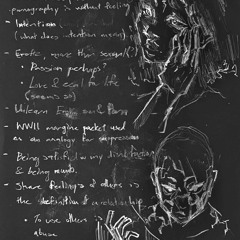 pornography is without feeling
- Intention
(what does intention mean)
- Erotic, more than sexual(?)
• Passion perhaps?
• Love & zeal for life
- Unlearn Erotic and Porn
- WWII margine packet used
as an analogy for suppression
- Being satisfied w my
& being numb.
- Share feelings of others is
the definition of a relationship
• To use others is
abuse